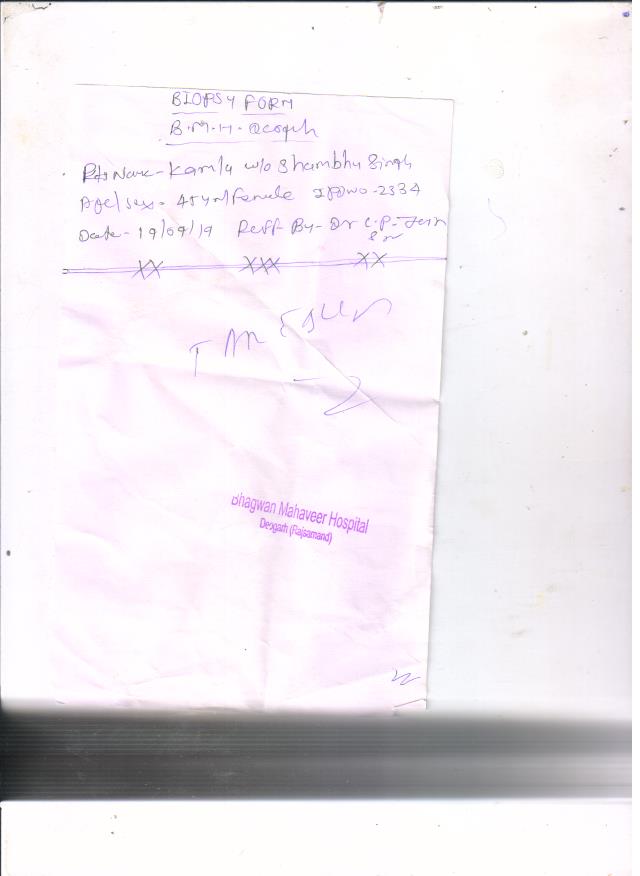 BIOPSY FORM
B.M.H. Deogarh
Pt's Name - Kamla w/o Shambhu Singh
Age/sex - 45yr/Female IPD NO - 2334
Date - 19/09/19 Reff By - Dr C.P. Jain
XX XXX XX
Bhagwan Mahaveer Hospital
Deogarh (Rajsamand)